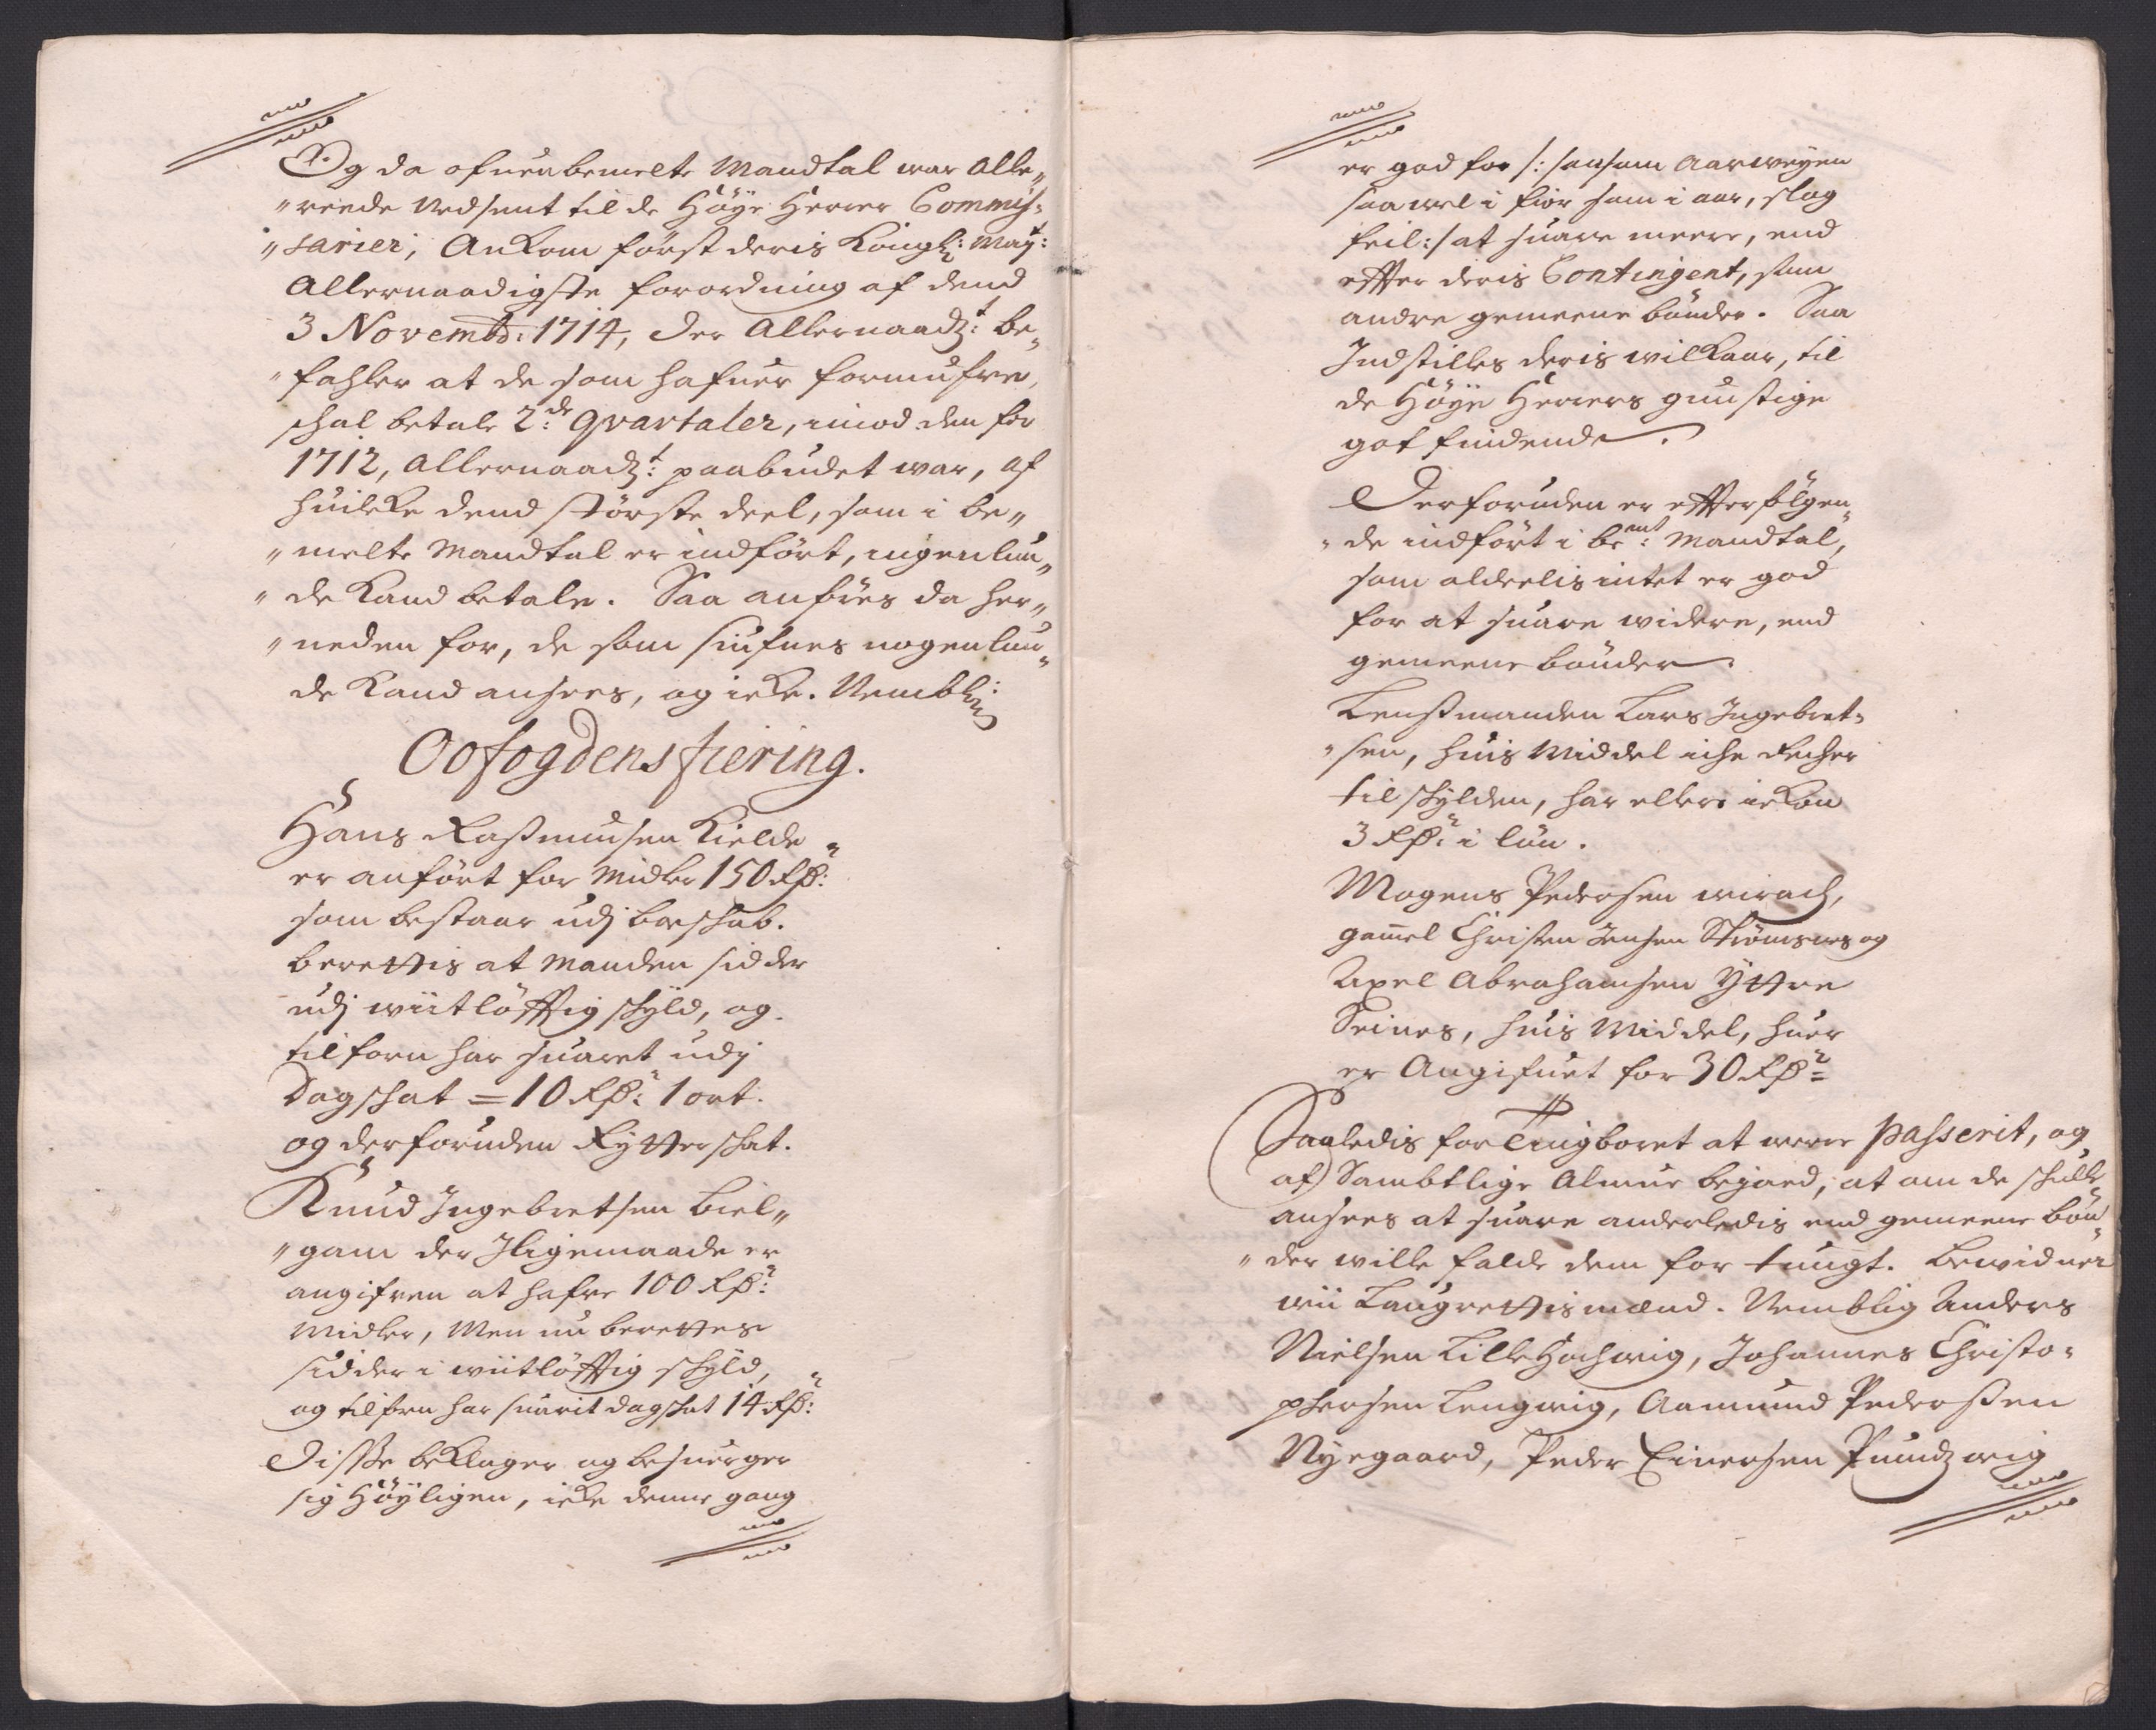 Og da ofuenbemelte Mandtal war Alle„
„reede Nedsent til de Höÿe Herrer Commis:
„sarier, Ankom först deris Kongl: Maÿ:t
Allernaadigste forordning af dend
3 Novemb: 1714, der Allernaadz:t be„
„fahler at de som hafuer formufve,
schal betale 2:de Qvartaler, imod den for
1712, Allernaadz:t paabudet war, af
huilcke dend störste deel, som i be„
„melte Mandtal er indfört, ingenlun„
„de Kand betale. Saa anföres da her„
„neden for, de som siufnes nogenlun„
de Kand ansees, og icke. Nembl:
Oofogdens fiering.
Hans Rasmusen Kielde
er anfört for Midler 150 Rd:r
som bestaar udj boeschab.
berettis at Manden sidder
udj wiitlöfftig schÿld, og
tilforn har suaret udj
Dagschat = 10 Rd:r 1 ort.
og derforuden Rÿtterschat.
Knud Ingebretsen Biel„
„gam der Iligemaade er
angifven at hafve 100 Rd:r
Midler, Men nu berettes
sidder i wiitlöfftig schÿld,
og tilforn har suarit dagschat 14 Rd:r
Disse beklager og besuerger
sig Höÿligen, icke denne gang
er god for /: saasom Aarweÿen
saa wel i fior som i aar, slog
feil :/ at suare meere, end
effter deris Contingent, som
andre gemeene bönder. Saa
Indstilles deris wilkaar, til
de Höÿe Herrers gunstige
gotfindende.
Derforuden er effterfölgen„
„de indfört i be:mt Mandtal,
som alderlis intet er god
for at suare widere, end
gemeene bönder.
Lensmanden Lars Ingebret„
„sen, huis Middel iche Recher
til schÿlden, har ellers ickon
3 Rd:r i lön.
Mogens Pedersen wirach,
gammel Christen Jensen Strömsnes og
Axel Abrahamsen Ÿttre
Seines, huis Middel, huer
er Angifuet for 30 Rd:r
Saaledis for Tingboret at were Passerit, og
af Sambtlige Almue begiæred, at om de schulle
ansees at suare anderledis end gemeene bön„
„der wille falde dem for tungt. bewidner
wii Laugrettismænd. Nemblig Anders
Nielsen Lille Hochwig, Johannes Christo„
phersen Lengwig, Aamund Pedersen
Nÿegaard, Peder Einersen Pundzwig